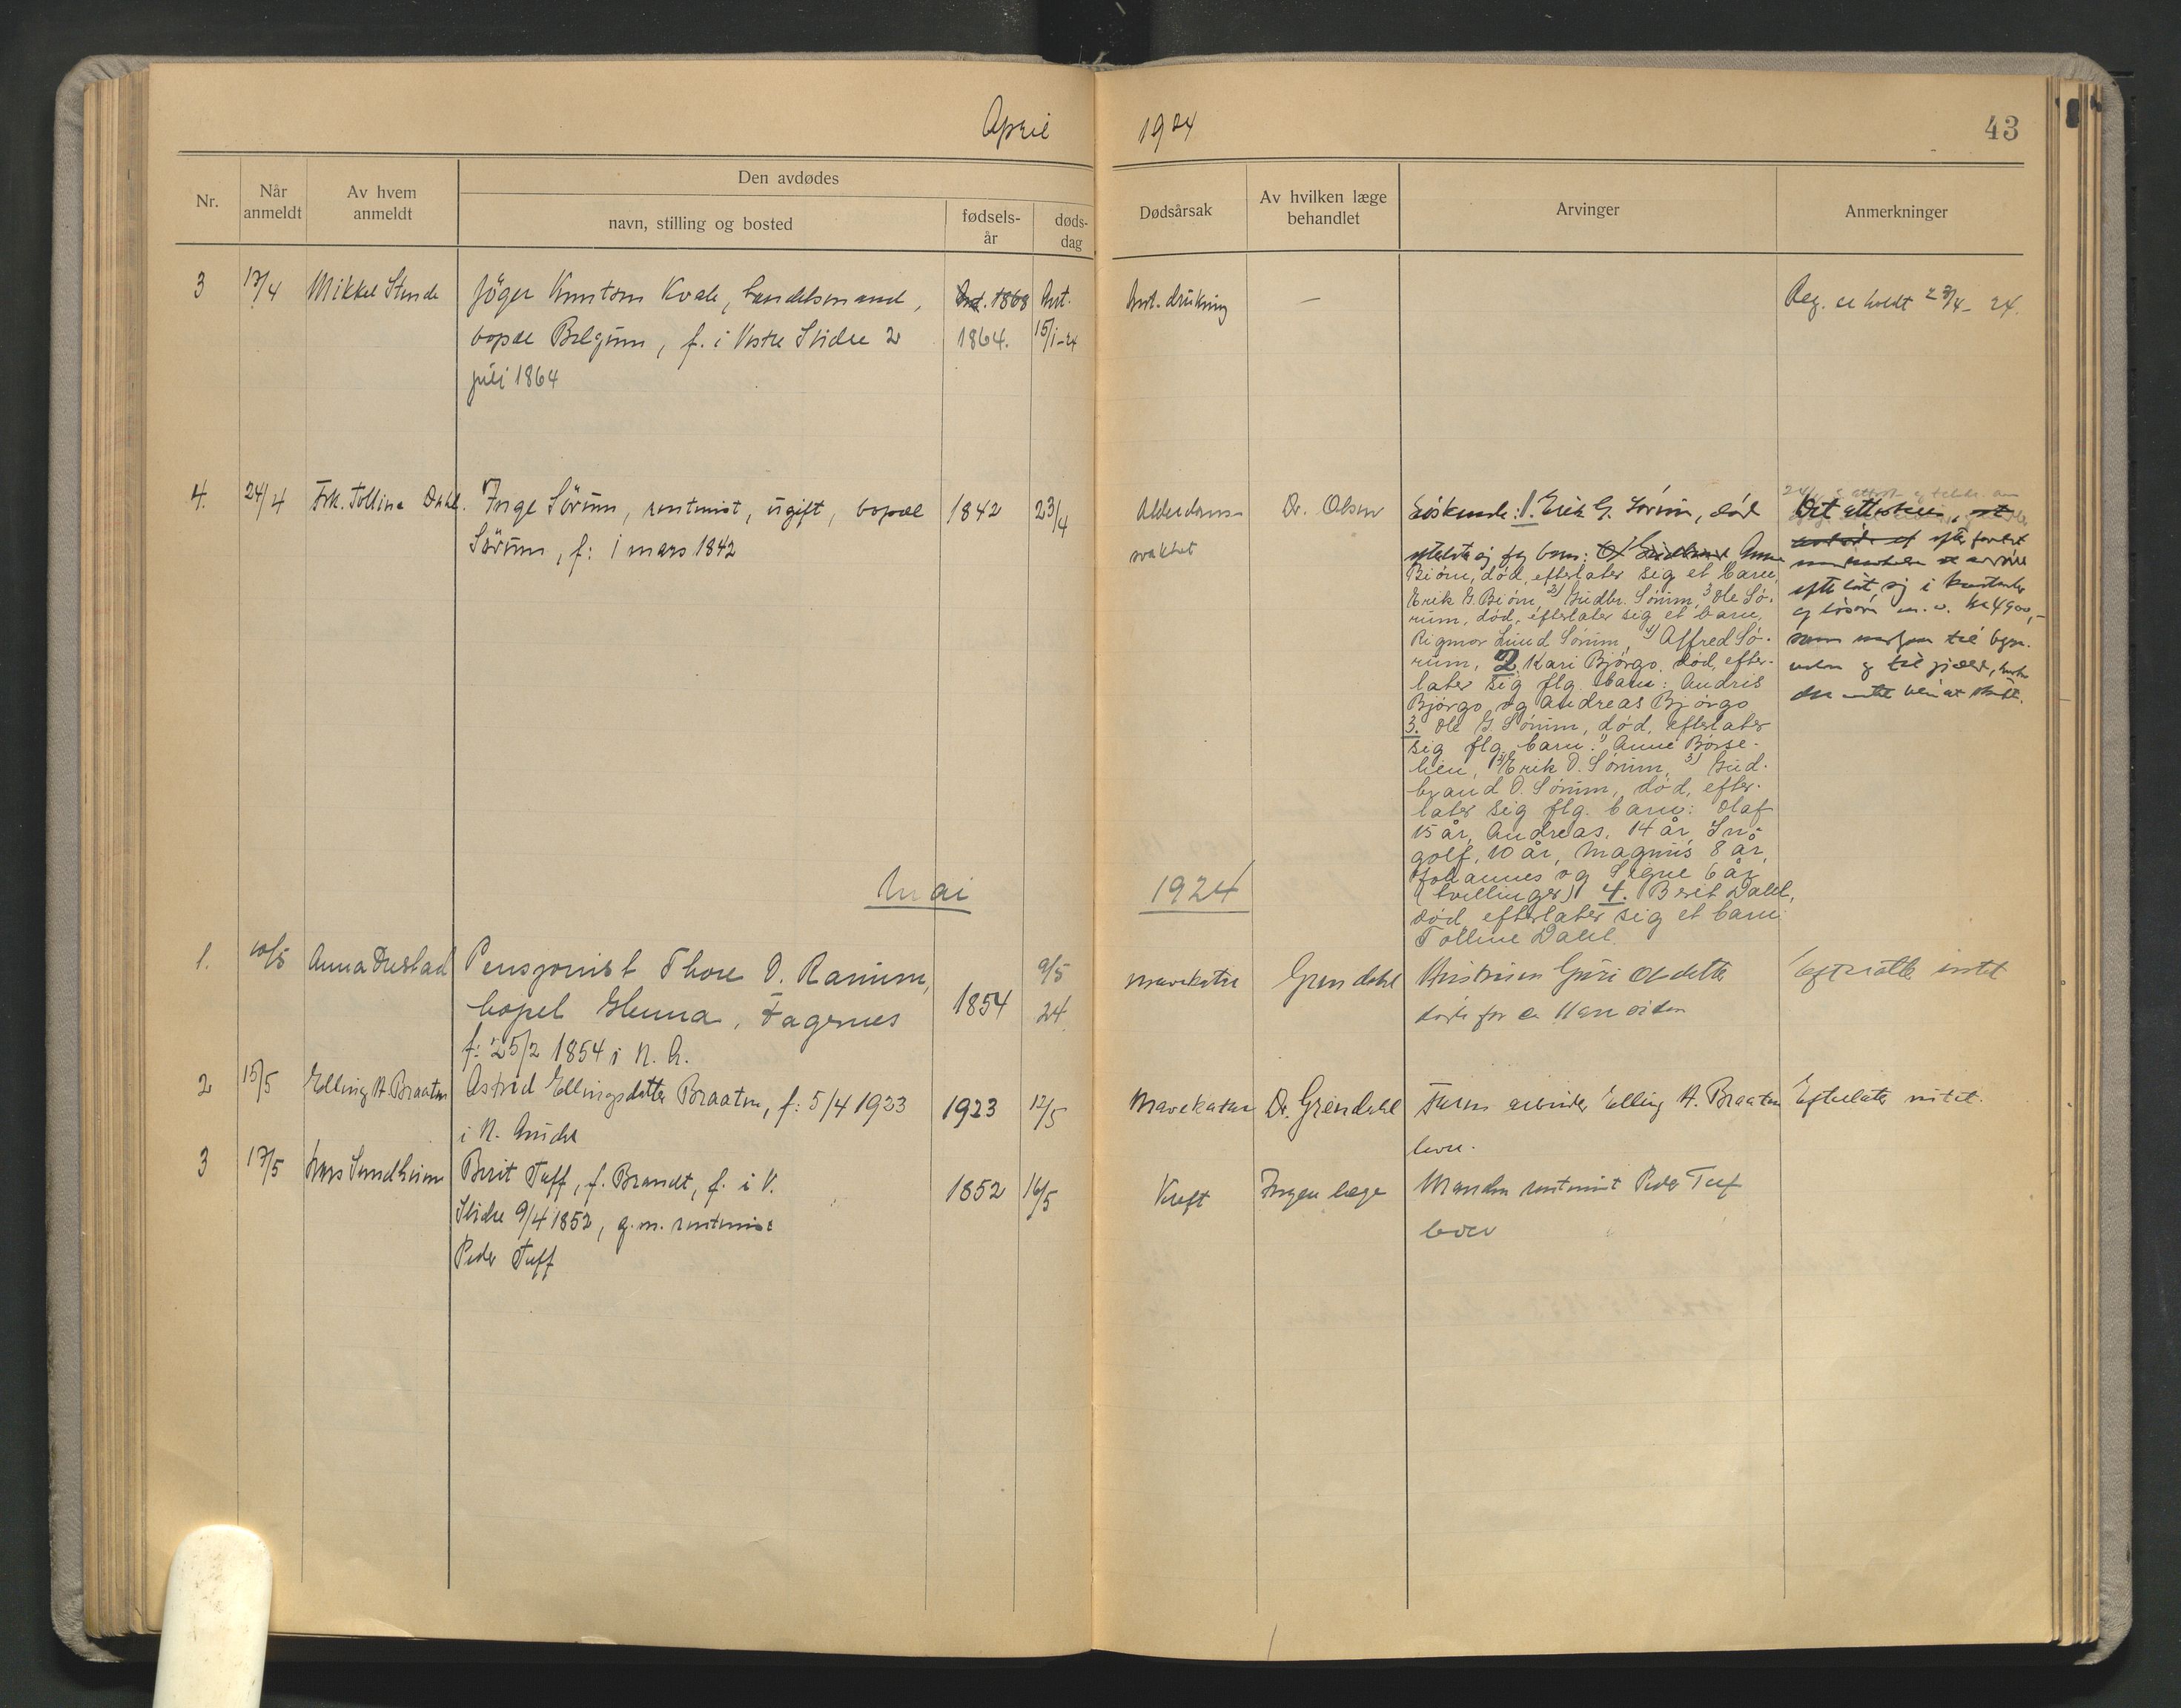 April 1924
43
Nr.
Når anmeldt
Av hvem anmeldt
Den avdødes
navn, stilling og bosted
fødsels-
år
døds-
dag
Dødsårsak
Av hvilken læge
behandlet
Arvinger
Anmerkninger
3
17/4
Mikkel Stende
Jöger Knutsen Kvale, handelsmand,
bopæl Belgum, f. i Vestre Slidre 2
juli 1864
Ant. 1868
1864.
Ant.
15/1-24
Ant. drukning
—
Reg. er holdt 23/4-24.
4.
24/4
Frk. Tolline Dahl.
Inge Sörum, rentenist, ugift, bopæl
Sörum, f: 1 mars 1842
1842
23/4
Alderdoms-
svakhet
Dr. Olsen
Söskende: 1. Erik G. Sörum, död
efterlater sig flg barn: Anne
Biörn, död, efterlater sig et barn,
Erik G. Biörn, 2) Gudbr. Sörum, 3 Ole Sö-
rum, död, efterlater sig et barn,
Rigmor Lund Sörum, 4) Alfred Sö-
rum, 2 Kari Bjórgo, död, efter-
later sig flg. barn: Andris
Bjórgo og Andreas Bjórgo
3. Ole G. Sörum, död, efterlater
sig flg. barn: 1) Anne Börse-
lien, 2) Erik O. Sörum, 3) Gud-
brand O. Sörum, död, efter-
later sig flg. barn: Olaf
15 år, Andreas, 14 år, Ing-
golf, 10 år, Magnus 8 år,
Johannes og Signe 6 år
(tvillinger) 4. Berit Dahl,
död, efterlater sig et barn:
Tolline Dahl.
Det attesteres, at
efter
efterlot sig i kontanter
og lösöre m. v. kr 400,-
som medgaar til begra-
velse og til gjæld,
Mai 1924
1.
10/5
Anna Dustad
Pensjonist Thore O. Ranum,
bopel Glenna, Fagernes
f: 25/2 1854 i N. A.
1854
9/5
24
Mavekatar
Grøndahl
Hustruen Guri Olsdatter
döde for ca 11 aar siden
Efterlater intet
2
15/5
Elling A. Braaten
Astrid Ellingsdatter Braaten, f: 5/4 1923
i N. Aurdal
1923
12/5
Mavekatar
Dr. Gröndahl
Faren arbeider Elling A. Braaten
lever.
Efterlater intet.
3
17/5
Lars Sundheim
Berit Tuff, f. Brandt, f. i V.
Slidre 9/4 1852, g. m. rentenist
Peder Tuff
1852
16/5
Kreft
Ingen læge
Manden rentenist Peder Tuff
lever